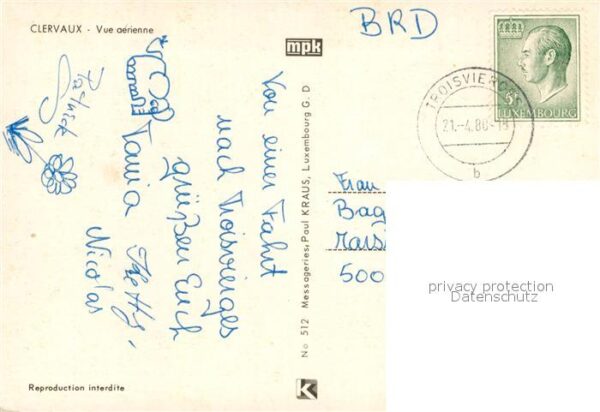 CLERVAUX - Vue aérienne
mpk
BRD
TROISVIERGES
21.-4.86-18
b
5F
LUXEMBOURG
Von einer Fahrt
nach Troisvierges
grüßen Euch
Tania
Nicolas
Patrick
No 512 Messageries Paul KRAUS, Luxembourg G. D
Frau
Bag
500
privacy protection
Datenschutz
K
Reproduction interdite